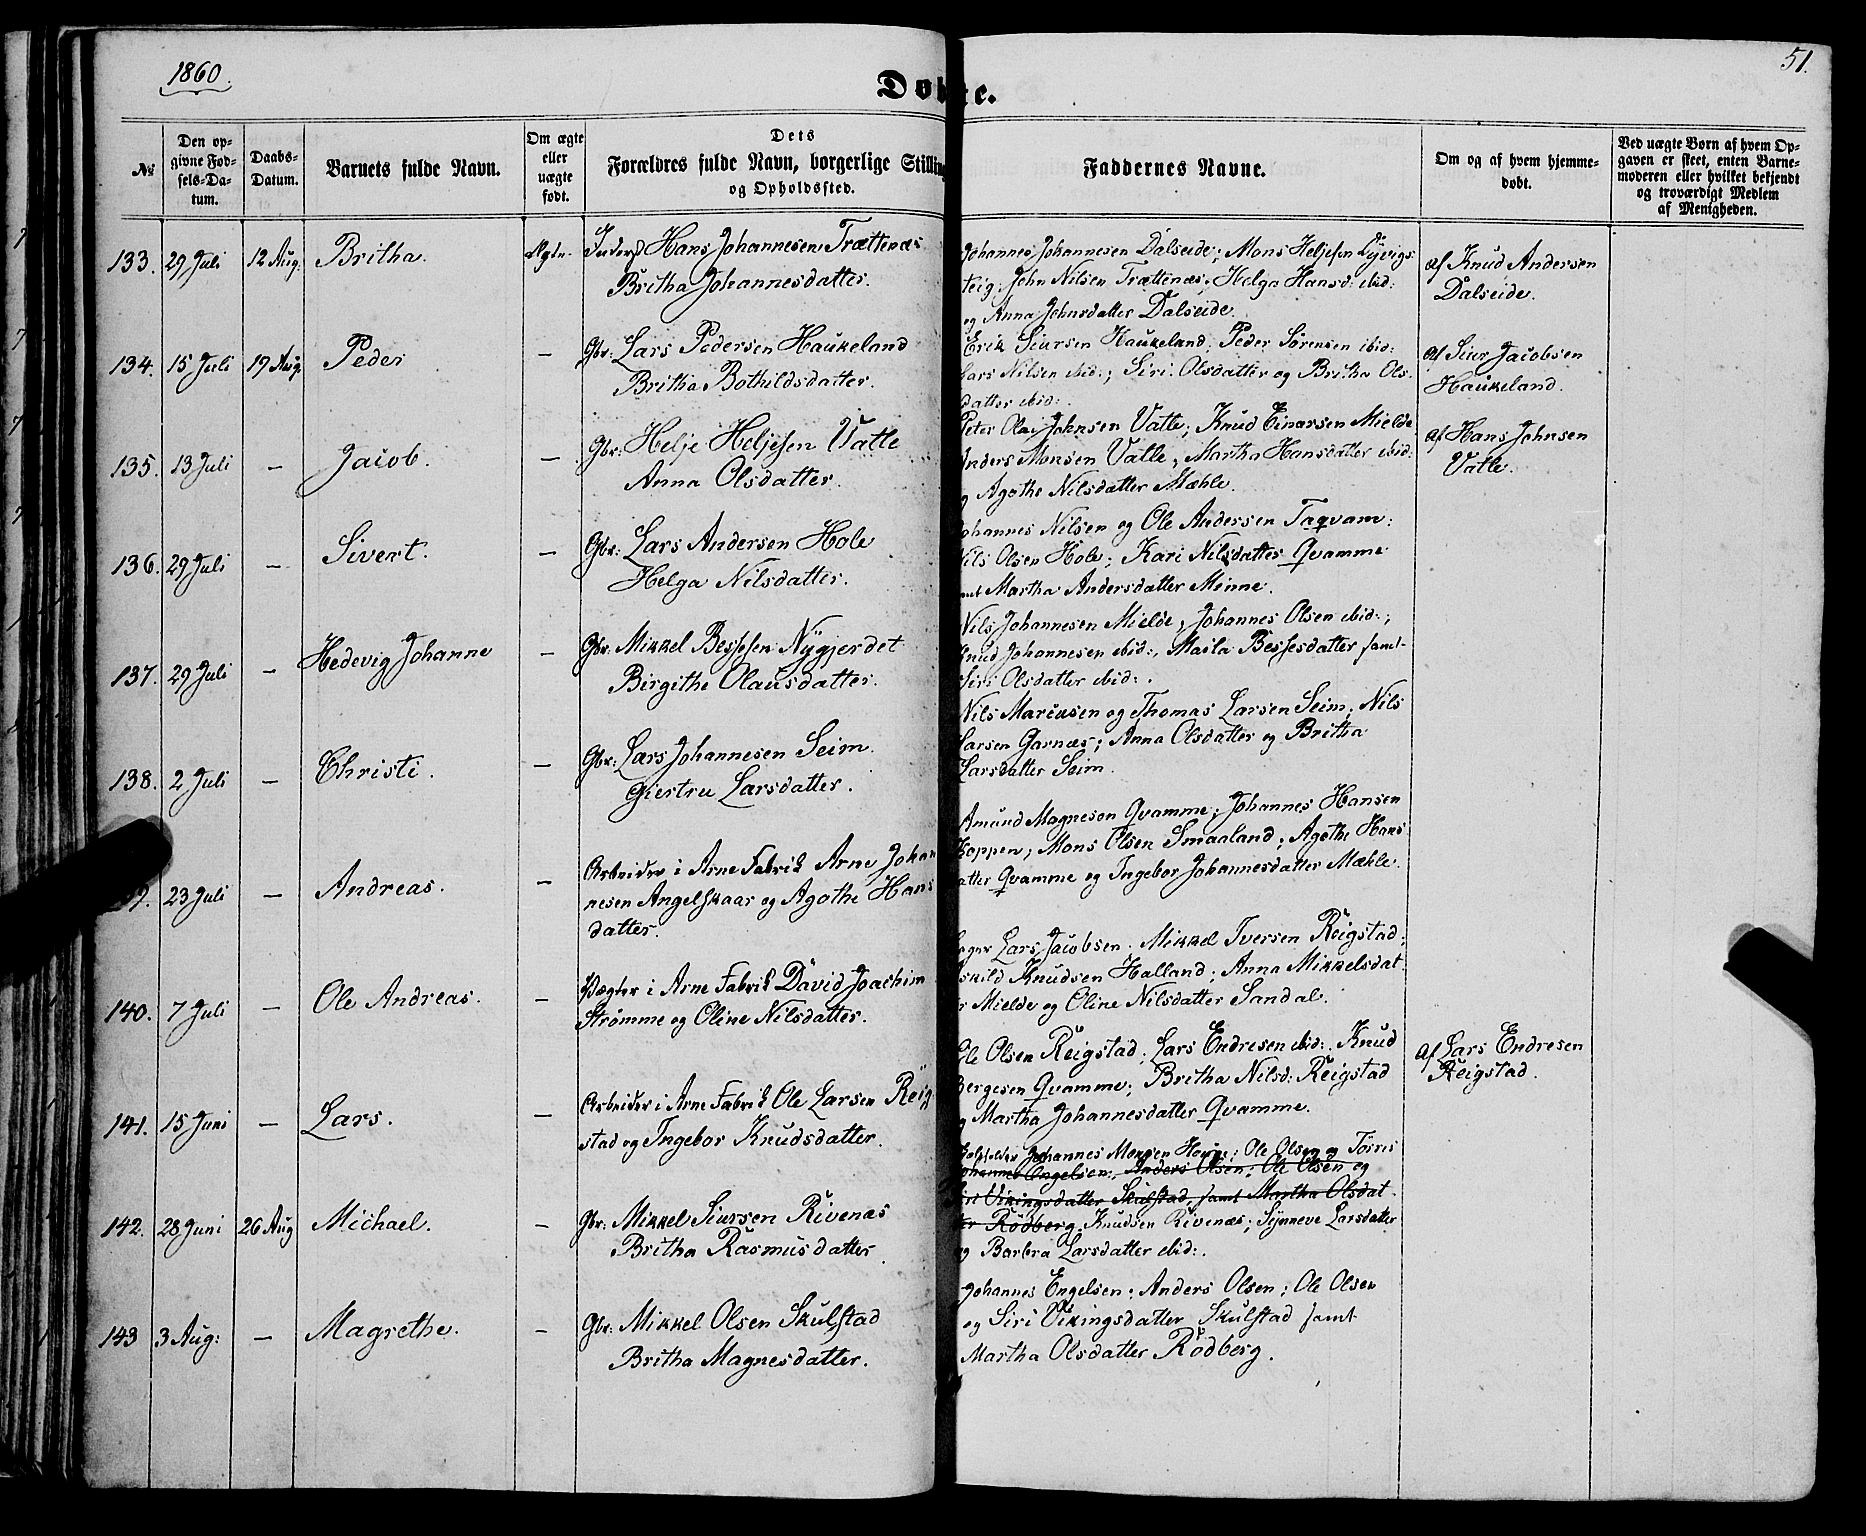 1860.
51.
Døbte.
№
Den opgivne Fødsels-Datum.
Daabs-Datum.
Barnets fulde Navn.
Om ægte eller uægte født.
Dets Forældres fulde Navn, borgerlige Stilling og Opholdsfted.
Faddernes Navne.
Om og af hvem hjemmedøbt.
Ved uægte Børn af hvem Opgaven er skeet, enten Barnemoderen eller hvilket bekjendt og troværdigt Medlem af Menigheden.
133. 29 Juli 12 Aug: Britha. Ægte. Inderst Hans Johannesen Trættenæs
Britha Johannesdatter.
Johannes Johannesen Dalseide; Mons Heljesen
teig; John Nilsen Trættenæs; Helga Hansd: ibid:
og Anna Johnsdatter Dalseide.
af Knud Andersen
Dalseide.
134. 15 Juli 19 Aug Peder — Gbr: Lars Pedersen Haukeland
Britha Bothildsdatter.
Erik Siursen Haukeland; Peder Sørensen ibid:
Lars Nilsen ibid:; Siri Olsdatter og Britha Ols-
datter ibid:.
af Siur Jacobsen
Haukeland.
135. 13 Juli — Jacob. — Gbr: Helje Heljesen Vatle
Anna Olsdatter.
Peter Olai Johnsen Vatle; Knud Einarsen Mielde
Anders Monsen Vatle; Martha Hansdatter ibid:
og Agothe Nilsdatter Mæhle.
af Hans Johnsen
Vatle.
136. 29 Juli — Sivert. — Gbr: Lars Andersen Hole
Helga Nilsdatter.
Johannes Nilsen og Ole Andersen Taqvam:
Nils Olsen Hole; Kari Nilsdatter Qvamme
samt Martha Andersdatter Minne.
137. 29 Juli — Hedevig Johanne — Gbr. Mikkel Bessesen Nygjerdet
Birgithe Olausdatter.
Nils Johannesen Mielde; Johannes Olsen ibid:;
Knud Johannesen ibid:, Marta Bessesdatter samt
Siri Olsdatter ibid:.
138. 2 Juli — Christi. — Gbr: Lars Johannesen Seim.
Giertru Larsdatter.
Nils Marcusen og Thomas Larsen Seim; Nils
Larsen Garnæs; Anna Olsdatter og Britha
Larsdatter Seim.
139. 23 Juli — Andreas. — Arbeider i Arne Fabrik Arne Johan
nesen Angelskaar og Agothe Hans
datter.
Amund Magneson Qvamme; Johannes Hansen
Koppen; Mons Olsen Smaaland; Agothe Hans
datter Qvamme og Ingebor Johannesdatter Mæhle.
140. 7 Juli — Ole Andreas. — Vægter i Arne Fabrik David Joachim
Strømme og Oline Nilsdatter.
Lars Jacobsen. Mikkel Iversen Reigstad;
Knudsen Halland; Anna Mikkelsdat-
r Mielde og Oline Nilsdatter Sandal.
141. 15 Juni — Lars. — Arbeider i Arne Fabrik Ole Larsen Reig
stad og Ingebor Knudsdatter.
Ole Olsen Reigstad; Lars Endresen ibid:. Knud
Bergesen Qvamme; Britha Nilsd: Reigstad
og Martha Johannesdatter Qvamme.
af Lars Endresen
Reigstad.
142. 28 Juni 26 Aug Michael. — Gbr: Mikkel Siursen Rivenæs
Britha Rasmusdatter
Johannes Monsen; Ole Olsen og Tørres
Johannes Engelsen; Anders Olsen; Ole Olsen og
Siri Vikingsdatter Skulstad, samt Martha Olsdat-
ter Rødberg. Knudsen Rivenæs; Synneve Larsdatter
og Barbra Larsdatter ibid:.
143 3 Aug: — Magrethe. — Gbr: Mikkel Olsen Skulstad
Britha Magnesdatter.
Johannes Engelsen; Anders Olsen; Ole Olsen
og Siri Vikingsdatter Skulstad samt
Martha Olsdatter Rødberg.